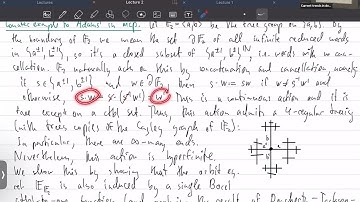 Lecture 2
Lecture 1
Current trends in des
example to Adams' is map. Let F₂ = ⟨a,b⟩ be the free group on {a,b}. By
the boundary of F₂ we mean the set ∂F₂ of all infinite reduced words
in {a^±1, b^±1}, so it's a closed subset of {a^±1, b^±1}^ℕ, i.e. words with no can-
cellation. F₂ naturally acts on this by concatenation and cancellation, namely
if s ∈ {a^±1, b^±1} and w ∈ ∂F₂, then s·w = sw if w ≠ s⁻¹w' and
otherwise, s·w = s·(s⁻¹w') = w'. Thus is a continuous action and it is
free except on a ctbl set. Thus, this action admits a 4-regular treeing
(with trees copies of the Cayley graph of F₂).
In particular, there are ∞-many ends.
Nevertheless, this action is hyperfinite.
We show this by showing that the orbit eq.
rel. is also induced by a single Borel
function (and